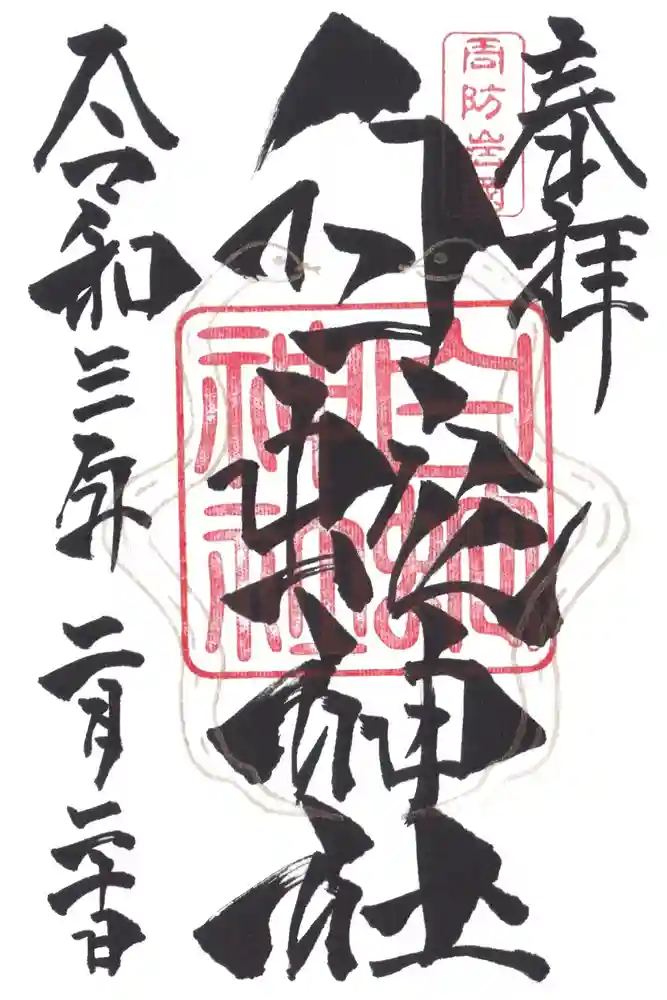 奉拝
周防岩國
白蛇神社
白蛇神社
令和三年二月二十日